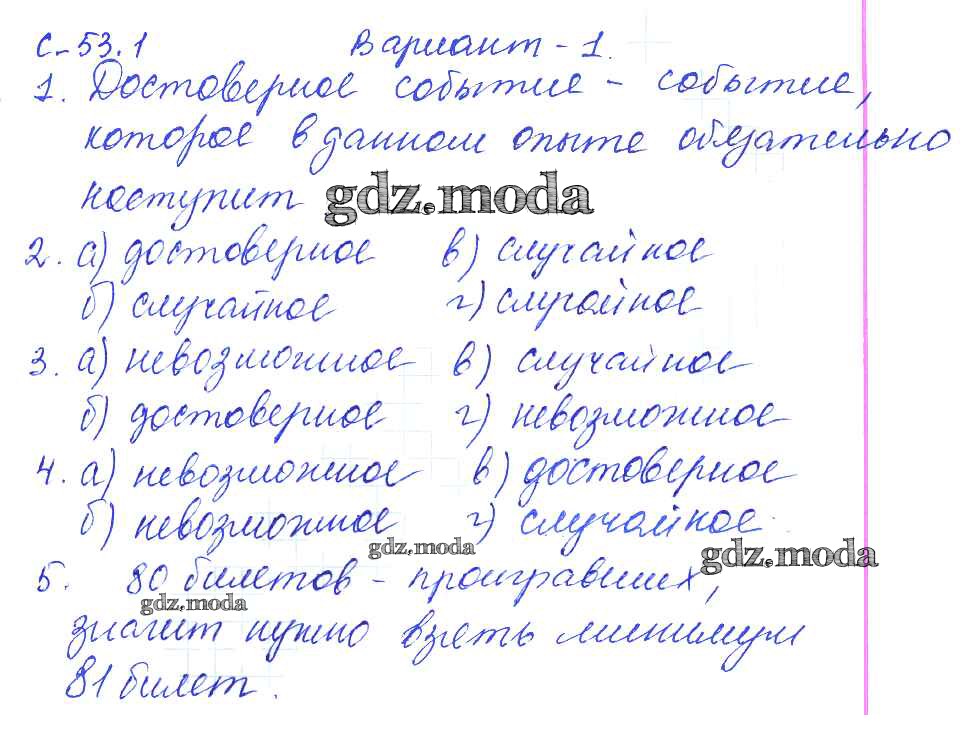 С-53.1 Вариант-1.
1. Достоверное событие - событие,
которое в данном опыте обязательно
наступит gdz.moda
2. а) достоверное в) случайное
б) случайное г) случайное
3. а) невозможное в) случайное
б) достоверное г) невозможное
4. а) невозможное в) достоверное
б) невозможное г) случайное.
gdz.moda gdz.moda
5. 80 билетов - проигравших,
gdz.moda
значит нужно взять минимум
81 билет.